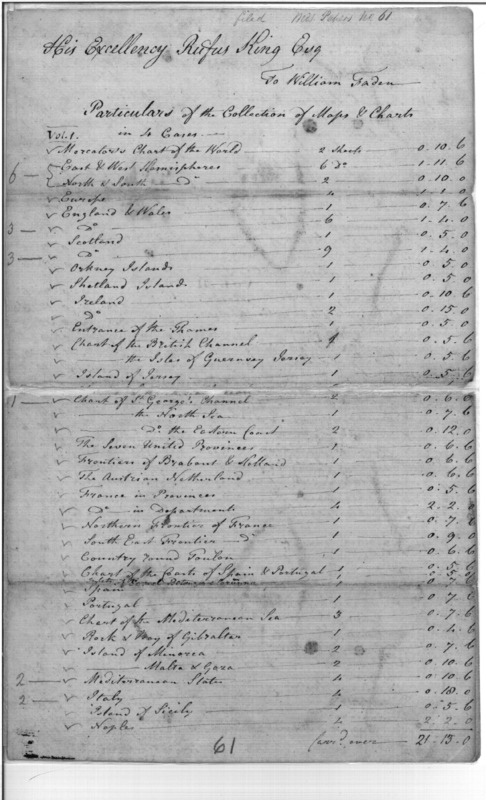 filed 61
His Excellency Rufus King Esq
To William Faden
Particulars of the Collection of Maps & Charts
in 4 Cases
Vol. 1.
Mercator's Chart of the World 2 Sheets 0. 10. 6
6 East & West Hemispheres 6 Do 1. 11. 6
North & South Do 2 0. 10. 0
Europe 4 1. 1. 0
England & Wales 1 0. 7. 6
3 Do 6 1. 4. 0
Scotland 1 0. 5. 0
3 Do 9 1. 4. 0
Orkney Islands 1 0. 5. 0
Shetland Islands 1 0. 5. 0
Ireland 1 0. 10. 6
Do 2 0. 15. 0
Entrance of the Thames 1 0. 5. 0
Chart of the British Channel 0. 5. 6
the Isles of Guernsey Jersey 1 0. 5. 6
Island of Jersey 1 0. 5. 6
1 Chart of St George's Channel 2 0. 6. 0
the North Sea 1 0. 7. 6
Do the Eastern Coast 2 0. 12. 0
The Seven United Provinces 1 0. 6. 6
Frontiers of Brabant & Holland 1 0. 6. 6
The Austrian Netherland 1 0. 6. 6
France in Provinces 1 0. 5. 6
Do in Departments 4 2. 2. 0
Northern Frontier of France 1 0. 7. 6
South East Frontier Do 1 0. 9. 0
Country round Toulon 1 0. 6. 6
Chart of the Coasts of Spain & Portugal 1 0. 5. 6
Spain 1 0. 7. 6
Portugal 1 0. 7. 6
Chart of the Mediterranean Sea 3 0. 7. 6
Rock & Bay of Gibraltar 1 0. 4. 6
Island of Minorca 2 0. 7. 6
Malta & Goza 2 0. 10. 6
2 Mediterranean States 4 0. 10. 6
2 Italy 4 0. 18. 0
Island of Sicily 1 0. 5. 6
Naples 4 2. 2. 0
61
Carrd. over 21. 13. 0